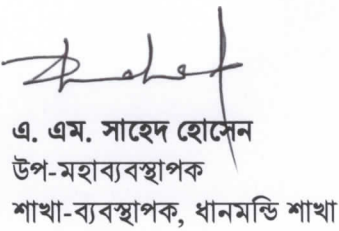 এ. এম. সাহেদ হোসেন
উপ-মহাব্যবস্থাপক
শাখা-ব্যবস্থাপক, ধানমন্ডি শাখা